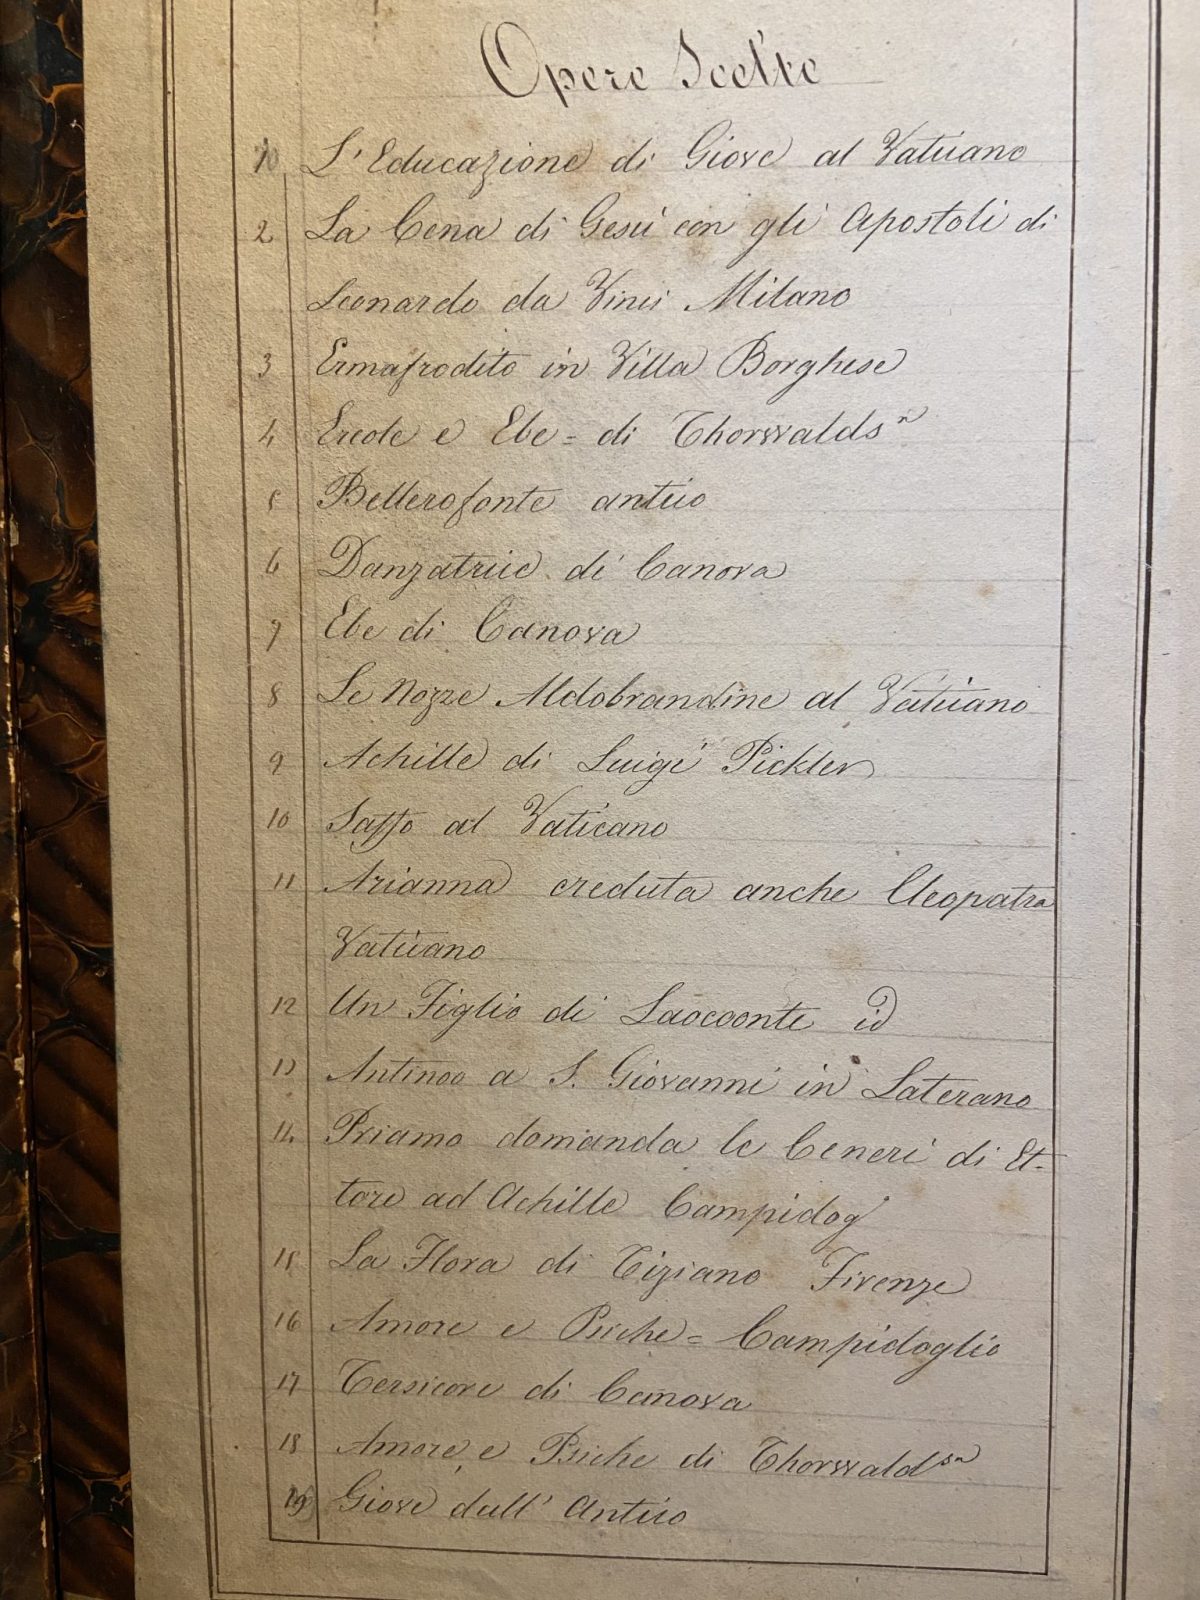 Opere Scelte
L'Educazione di Giove al Vaticano
2 La Cena di Gesù con gli Apostoli di
Leonardo da Vinci Milano
3 Ermafrodito in Villa Borghese
4 Ercole e Ebe = di Thorwaldsn
5 Bellerofonte antico
6 Danzatrice di Canova
7 Ebe di Canova
8 Le Nozze Aldobrandine al Vaticano
9 Achille di Luigi Pickler
10 Saffo al Vaticano
11 Arianna creduta anche Cleopatra
Vaticano
12 Un Figlio di Laocoonte id
13 Antinoo a S. Giovanni in Laterano
14. Priamo domanda le Ceneri di Et-
tore ad Achille Campidog'
15 La Flora di Tiziano Firenze
16 Amore e Psiche = Campidoglio
17 Tersicore di Canova
18 Amore e Psiche di Thorwaldsn
19 Giove dall' Antico